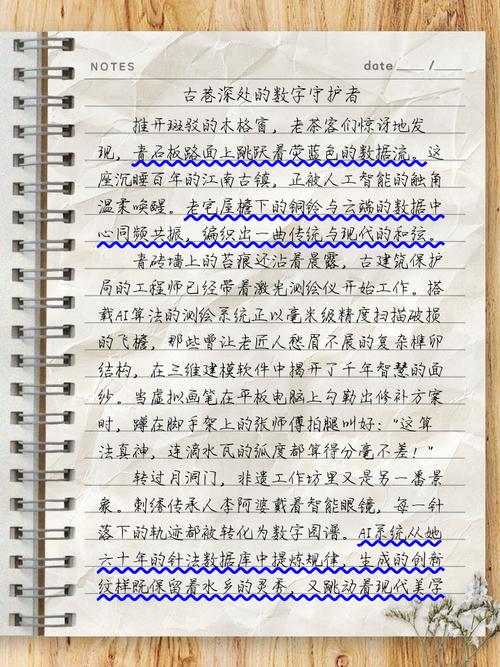 NOTES
date ____ / ___
古巷深处的数字守护者
推开斑驳的木格窗，老茶客们惊讶地发
现，青石板路面上跳跃着荧蓝色的数据流。这
座沉睡百年的江南古镇，正被人工智能的触角
温柔唤醒。老宅屋檐下的铜铃与云端的数据中
心同频共振，编织出一曲传统与现代的和弦。
青砖墙上的苔痕还沾着晨露，古建筑保护
局的工程师已经带着激光测绘仪开始工作。搭
载AI算法的测绘系统正以毫米级精度扫描破损
的飞檐，那些曾让老匠人愁眉不展的复杂榫卯
结构，在三维建模软件中揭开了千年智慧的面
纱。当虚拟画笔在平板电脑上勾勒出修补方案
时，蹲在脚手架上的张师傅拍腿叫好："这算
法真神，连滴水瓦的弧度都算得分毫不差！"
转过月洞门，非遗工作坊里又是另一番景
象。刺绣传承人李阿婆戴着智能眼镜，每一针
落下的轨迹都被转化为数字图谱。AI系统从她
六十年的针法数据库中提炼规律，生成的创新
纹样既保留着水乡的灵秀，又跳动着现代美学